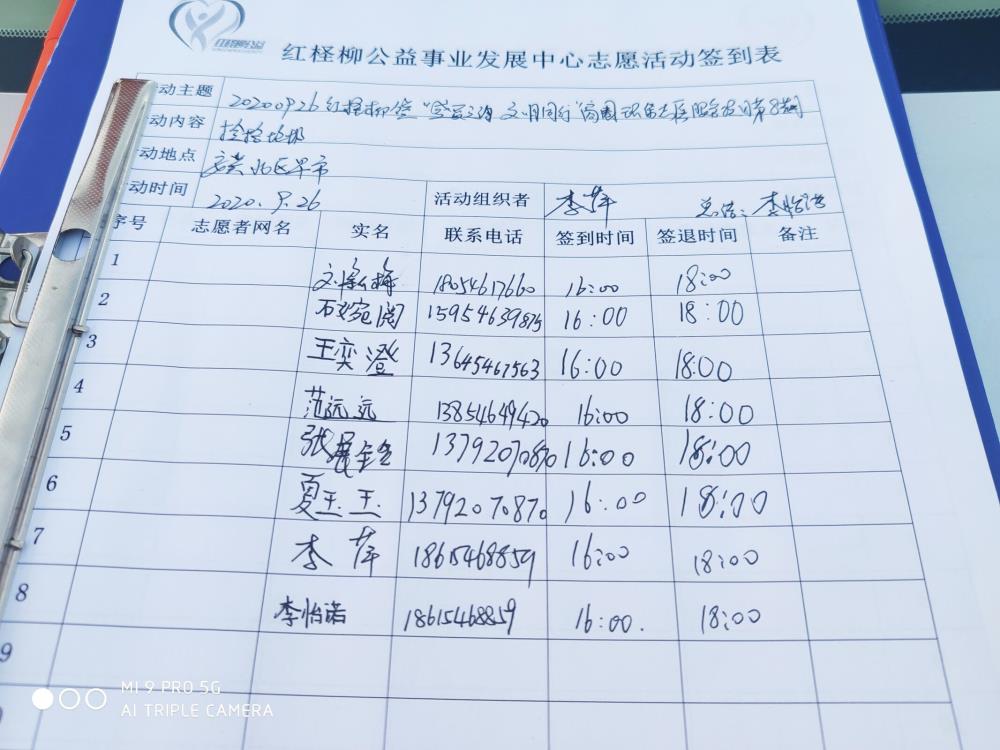 红柽柳公益事业发展中心志愿活动签到表
动主题 20200926红柽柳
动内容 捡拾垃圾
动地点 北区早市
动时间 2020.9.26 活动组织者 李萍 总结：李怡诺
序号 志愿者网名 实名 联系电话 签到时间 签退时间 备注
1 18054617660 16:00 18:00
2 石婉闵 15954639875 16:00 18:00
3 王奕澄 13645467563 16:00 18:00
4 范沅沅 13854649420 16:00 18:00
5 张 13792070870 16:00 18:00
6 夏玉玉 13792070870 16:00 18:00
7 李萍 18615468859 16:00 18:00
8 李怡诺 18615468859 16:00. 18:00
9
MI 9 PRO 5G
AI TRIPLE CAMERA